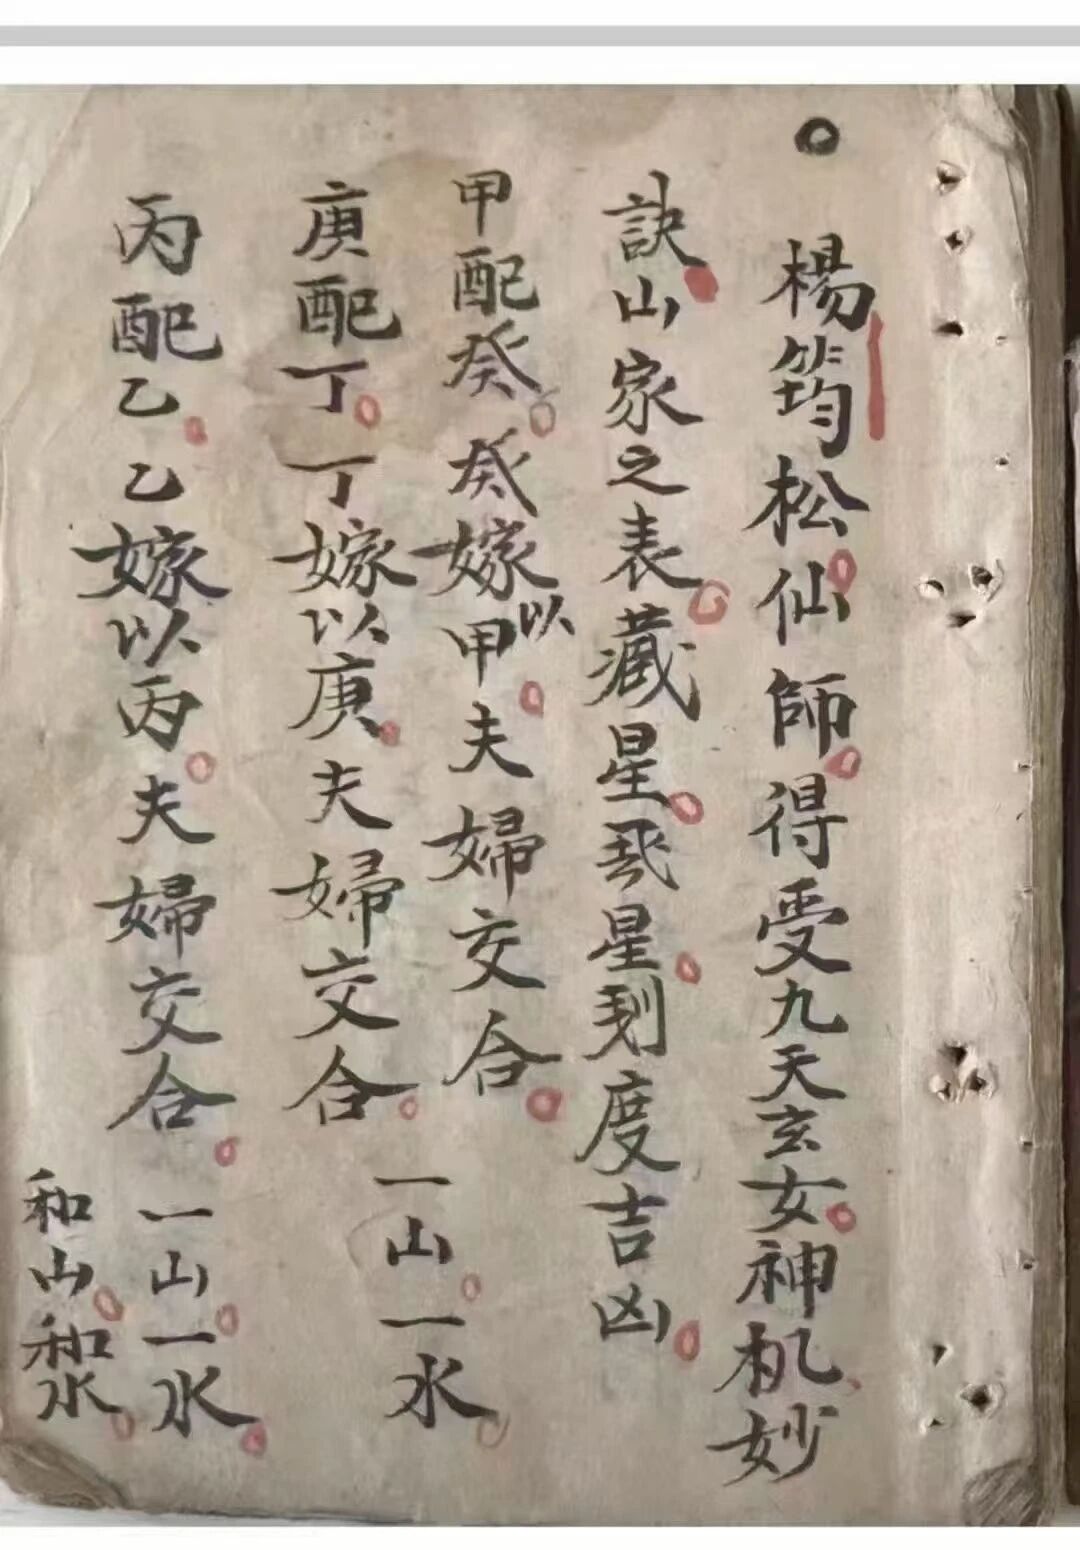 楊筠松仙師得受九天玄女神机妙
訣山家之表藏星飛星刻度吉凶
甲配癸癸嫁以甲夫婦交合
庚配丁丁嫁以庚夫婦交合一山一水
丙配乙乙嫁以丙夫婦交合一山一水
和山和水